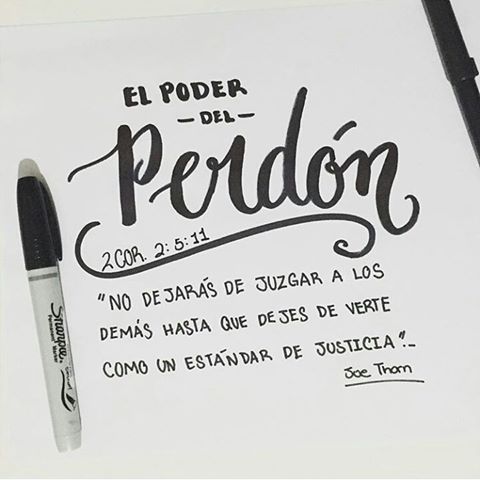 EL PODER
- DEL -
Perdón
2 COR. 2:5:11
"NO DEJARÁS DE JUZGAR A LOS
DEMÁS HASTA QUE DEJES DE VERTE
COMO UN ESTÁNDAR DE JUSTICIA"._
Joe Thorn
Sharpie
Permanent Marker